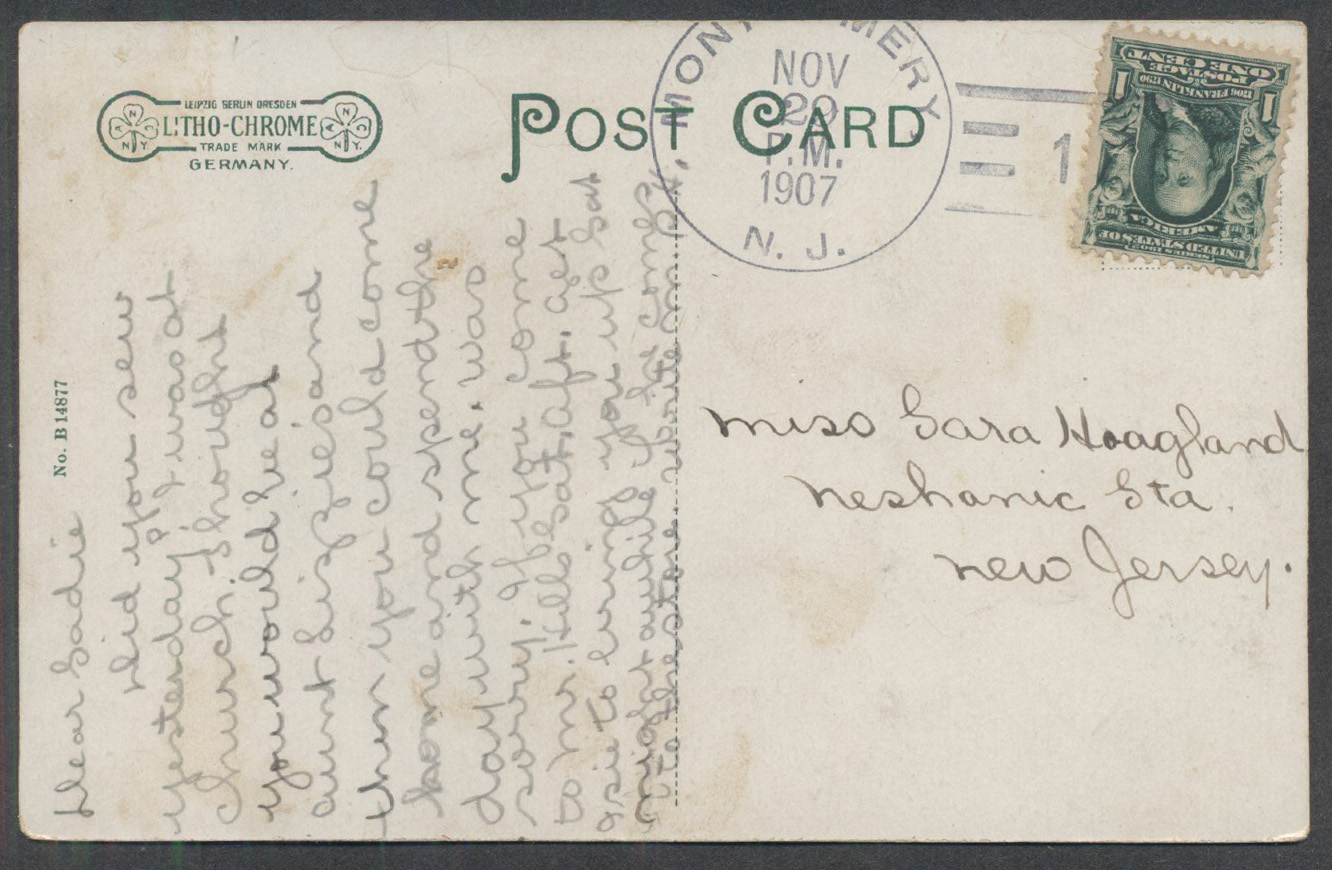 LEIPZIG BERLIN DRESDEN
LITHO-CHROME
TRADE MARK
GERMANY.
A N C N.Y.
A N C N.Y.
POST CARD
MONTGOMERY,
NOV
29
P.M.
1907
N. J.
1
SERIES 1902
UNITED STATES OF
AMERICA
1706 FRANKLIN 1790
POSTAGE
1 ONE CENT 1
No. B 14877
Dear Sadie
Did you sew
yesterday I was at
church. Thought
you would be at
aunt Lizzies and
then you could come
home and spend the
day with me. was
sorry. If you come
to Mr. Hills Sat. aft. get
asie to bring you up Sat
night awhile if he comes
to the store. write on
Miss Sara Hoagland
Neshanic Sta.
New Jersey.